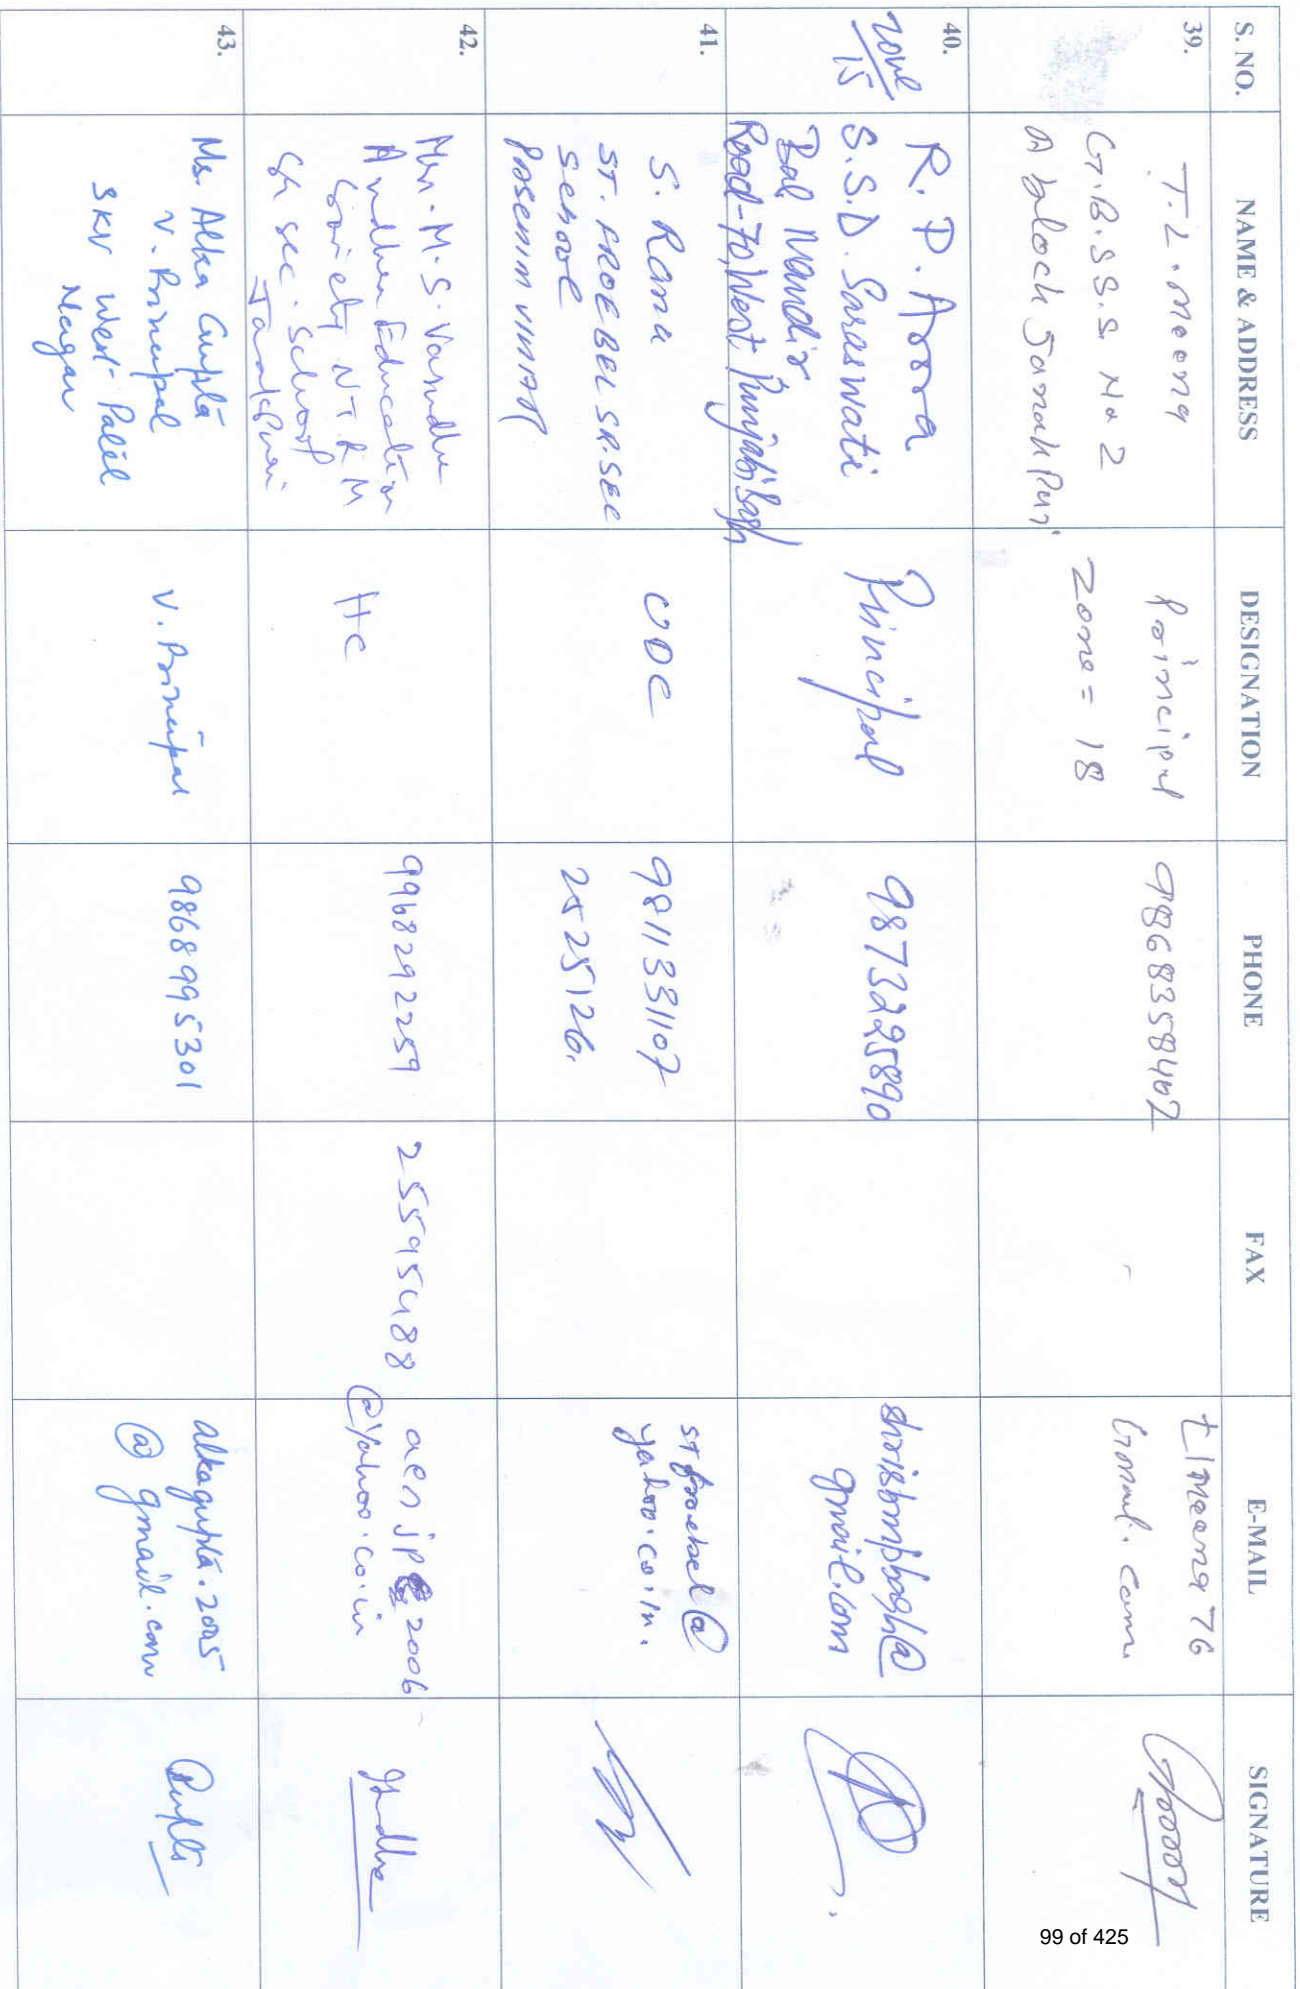 S. NO. NAME & ADDRESS DESIGNATION PHONE FAX E-MAIL SIGNATURE
39.
T. L. Meena
G.B.S.S.S. No 2
A block Janakpuri
Principal
Zone = 18
9868358407
tlmeena76
Gmail.com
40.
Zone
15
R. P. Arora
S.S.D. Saraswati
Bal Mandir
Road-70, West Punjabi Bagh
Principal
9873225890
@
gmail.com
41.
S. Rana
ST. FROEBEL SR. SEC
SCHOOL
PASCHIM VIHAR
UDC
9811331107
25225126.
stfroebel@
yahoo.co.in.
42.
Mrs. M. S. Vasudha
Andhra Education
Society
Sr. Sec. School
Janakpuri
HC
9968292259
25595488
aesjp 2006
@yahoo.co.in
43.
Ms. Alka Gupta
V. Principal
SKV West Patel
Nagar
V. Principal
9868995301
alkagupta.2005
@gmail.com
99 of 425